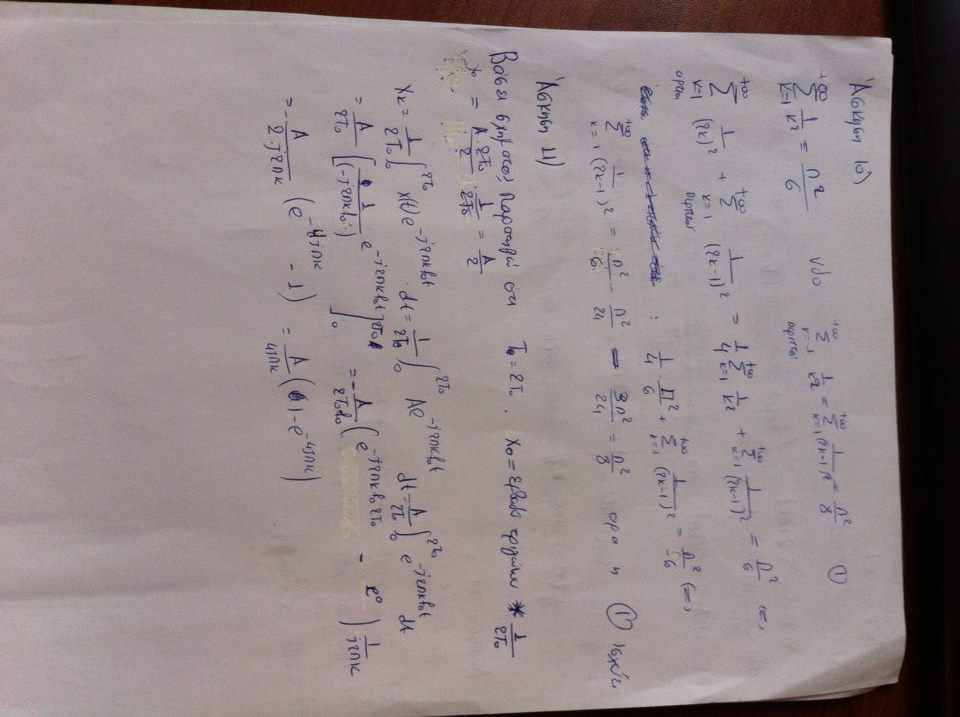 Άσκηση 10)
+∞ Σ κ=1 1/κ² = π²/6 νδο +∞ Σ κ=1 περιττοί 1/κ² = +∞ Σ κ=1 1/(2κ-1)² = π²/8 (1)
+∞ Σ κ=1 άρτιοι 1/(2κ)² + +∞ Σ κ=1 περιττοί 1/(2κ-1)² = 1/4 +∞ Σ κ=1 1/κ² + +∞ Σ κ=1 1/(2κ-1)² = π²/6 <=>
: 1/4 · π²/6 + +∞ Σ κ=1 1/(2κ-1)² = π²/6 <=>
+∞ Σ κ=1 1/(2κ-1)² = π²/6 - π²/24 = 3π²/24 = π²/8 αρα η (1) ισχύει
Άσκηση 11)
Βάσει σχήματος παρατηρώ οτι T₀ = 2T₀ . X₀ = εμβαδό τριγώνου * 1/2T₀
X₀ = A·2T₀/2 · 1/2T₀ = A/2
Xκ = 1/2T₀ ∫₀^2T₀ x(t) e^-j2πκf₀t dt = 1/2T₀ ∫₀^2T₀ A e^-j2πκf₀t dt = A/2T₀ ∫₀^2T₀ e^-j2πκf₀t dt
= A/2T₀ [ 1/(-j2πκf₀) e^-j2πκf₀t ]₀^2T₀ = - A/2T₀f₀ ( e^-j2πκf₀2T₀ - e⁰ ) 1/j2πκ
= - A/2·j2πκ ( e^-4jπκ - 1 ) = A/4jπκ ( 1 - e^-4jπκ )